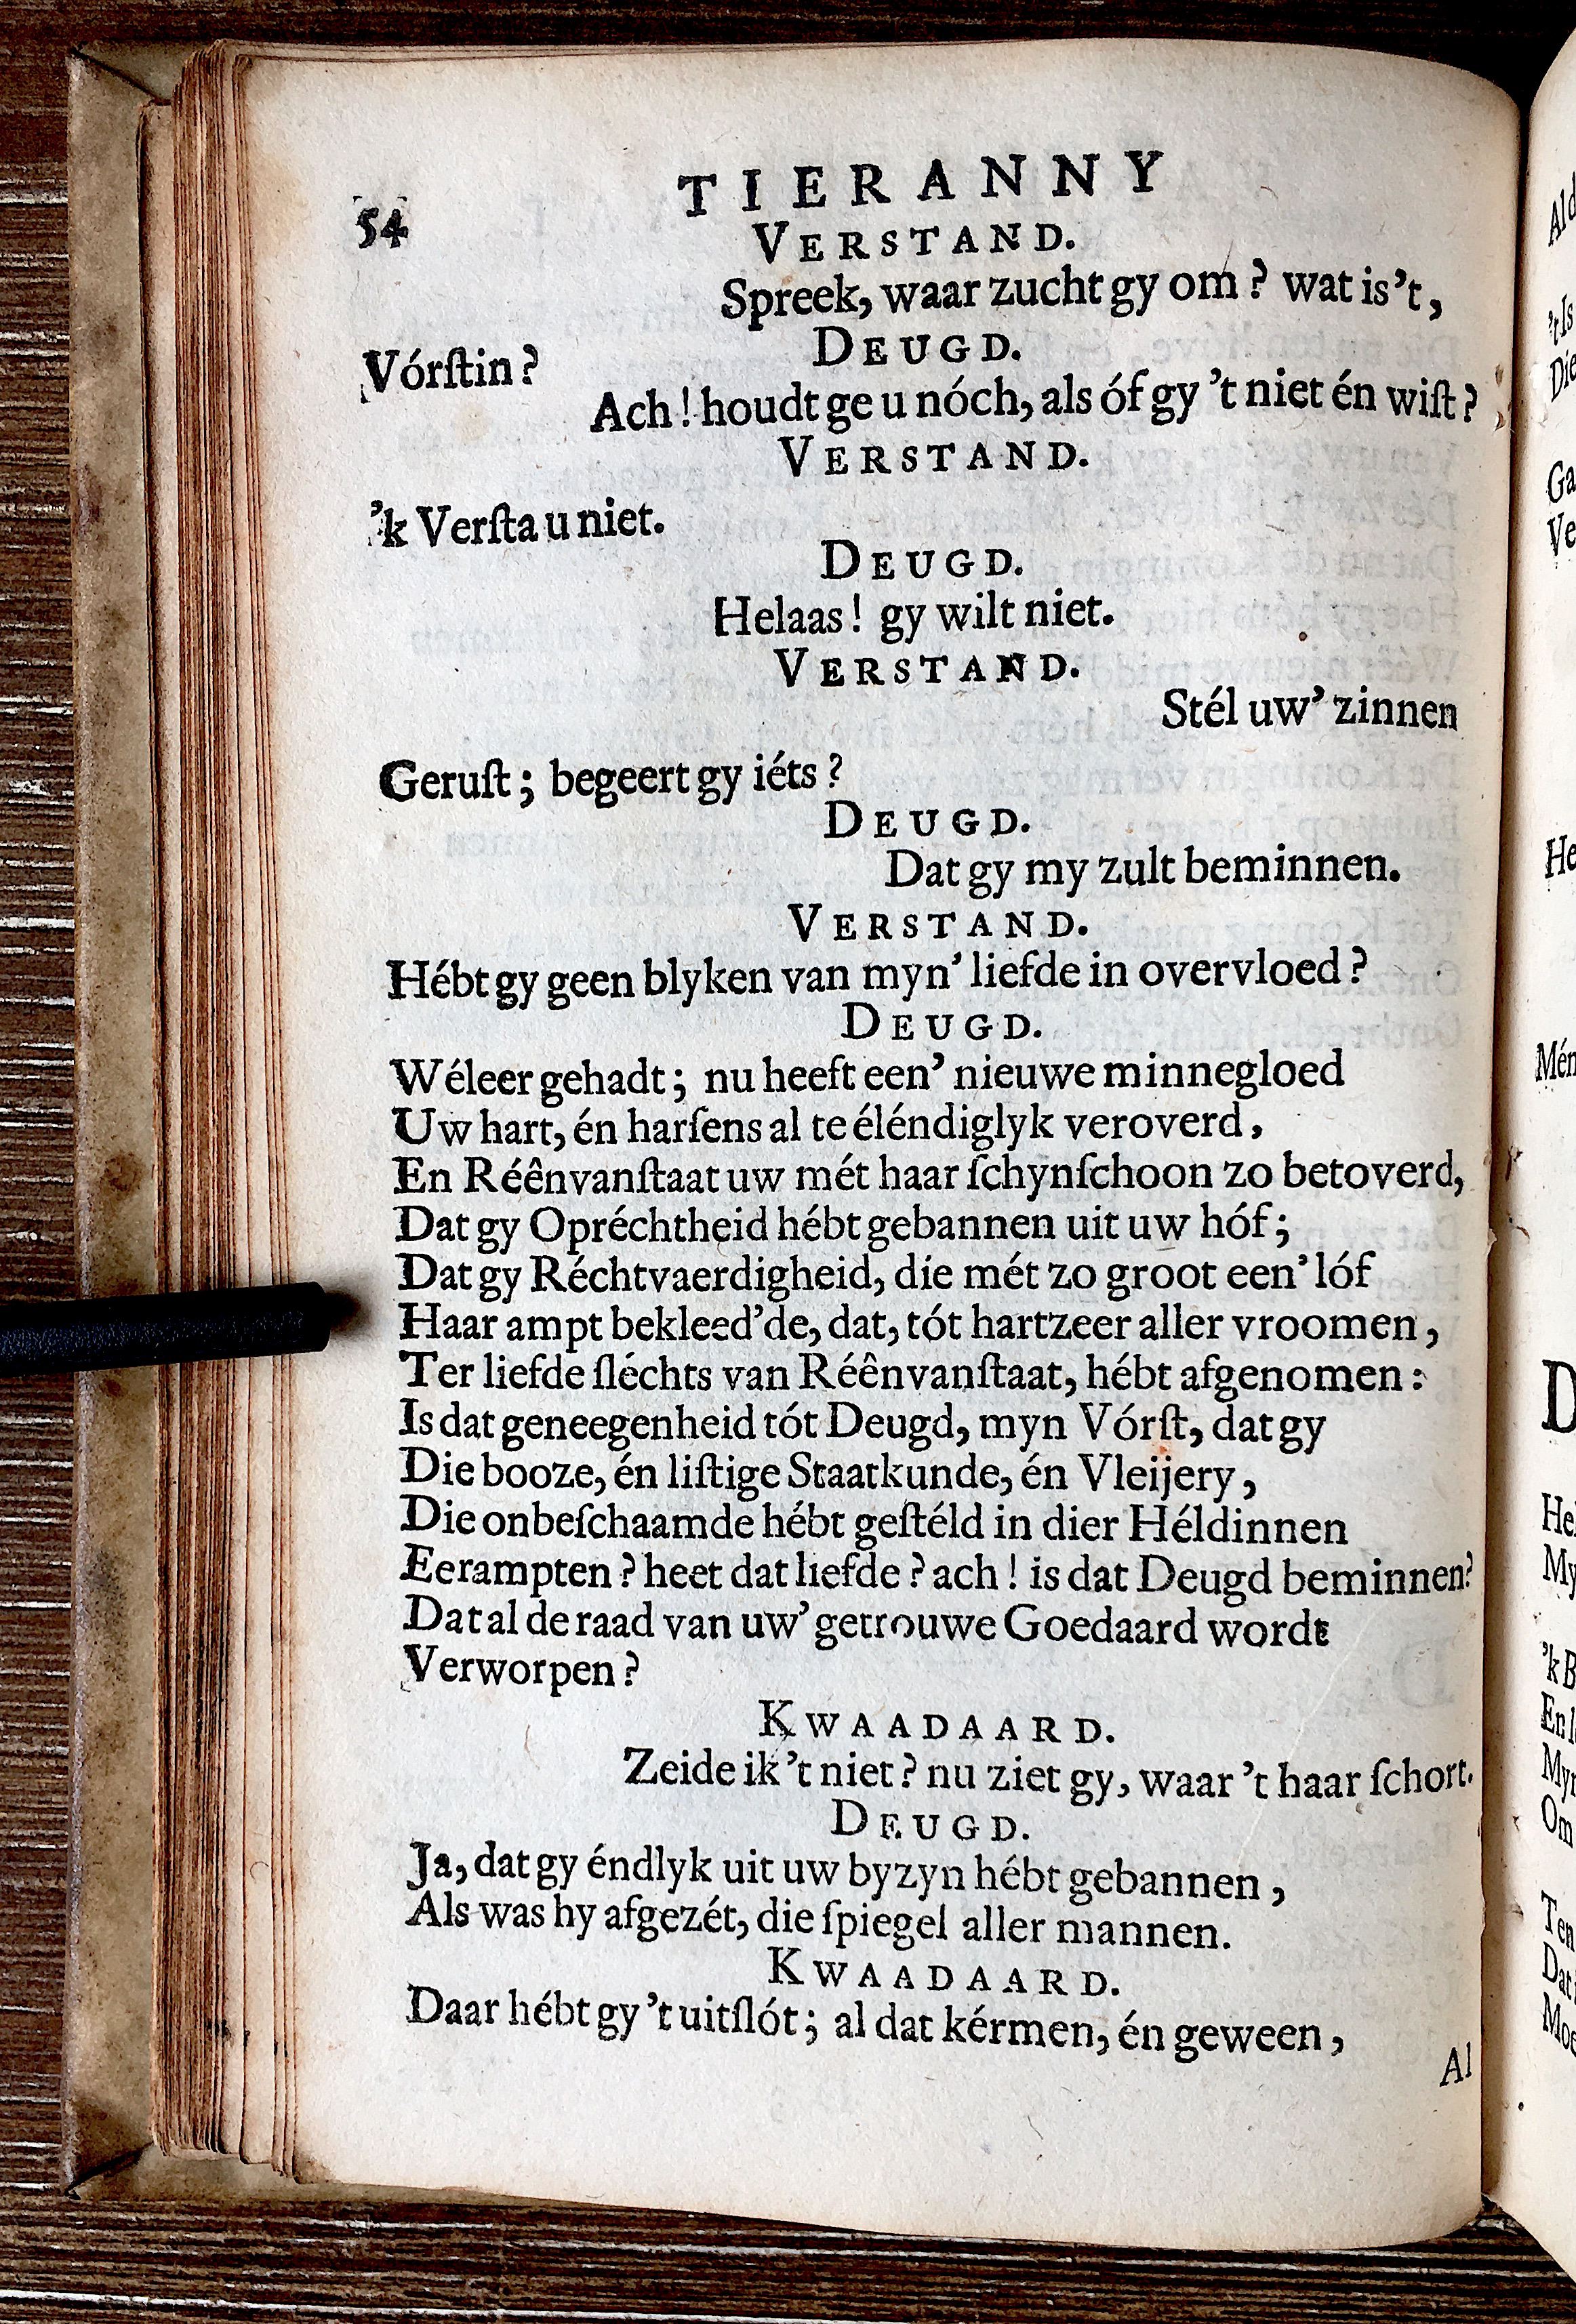 54 TIERANNY
VERSTAND.
Spreek, waar zucht gy om? wat is't,
Vórſtin?
DEUGD.
Ach! houdt ge u nóch, als óf gy 't niet én wiſt?
VERSTAND.
'k Verſta u niet.
DEUGD.
Helaas! gy wilt niet.
VERSTAND.
Stél uw' zinnen
Geruſt; begeert gy iéts?
DEUGD.
Dat gy my zult beminnen.
VERSTAND.
Hébt gy geen blyken van myn' liefde in overvloed?
DEUGD.
Wéleer gehadt; nu heeft een' nieuwe minnegloed
Uw hart, én harſens al te éléndiglyk veroverd,
En Réênvanſtaat uw mét haar ſchynſchoon zo betoverd,
Dat gy Opréchtheid hébt gebannen uit uw hóf;
Dat gy Réchtvaerdigheid, die mét zo groot een' lóf
Haar ampt bekleed'de, dat, tót hartzeer aller vroomen,
Ter liefde ſléchts van Réênvanſtaat, hébt afgenomen:
Is dat geneegenheid tót Deugd, myn Vórſt, dat gy
Die booze, én liſtige Staatkunde, én Vleijery,
Die onbeſchaamde hébt geſtéld in dier Héldinnen
Eerampten? heet dat liefde? ach! is dat Deugd beminnen?
Dat al de raad van uw' getrouwe Goedaard wordt
Verworpen?
KWAADAARD.
Zeide ik 't niet? nu ziet gy, waar 't haar ſchort.
DEUGD.
Ja, dat gy éndlyk uit uw byzyn hébt gebannen,
Als was hy afgezét, die ſpiegel aller mannen.
KWAADAARD.
Daar hébt gy 't uitſlót; al dat kérmen, én geween,
Al